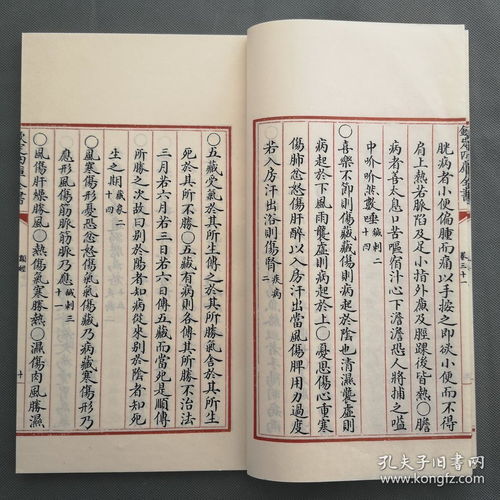 欽定四庫全書
卷三十一
胱病者小便偏腫而痛以手按之即欲小便而不得
肩上熱若脈陷及足小指外廉及脛踝後皆熱○膽
病者善太息口苦嘔宿汁心下澹澹恐人將捕之嗌
中吤吤然數唾鍼刺二十四
○喜樂不節則傷藏藏傷則病起於陰也清濕襲虛則
病起於下風雨襲虛則病起於上○憂思傷心重寒
傷肺忿怒傷肝醉以入房汗出當風傷脾用力過度
○若入房汗出浴則傷腎疾病二
○五藏受氣於其所生傳之於其所勝氣舍於其所生
死於其所不勝○五藏有病則各傳其所勝不治法
三月若六月若三日若六日傳五藏而當死是順傳
所勝之次故曰别於陽者知病從來别於陰者知死
生之期藏象二十四
○風寒傷形憂恐忿怒傷氣氣傷藏乃病藏寒傷形乃
應形風傷筋脈筋脈乃應鍼刺三十一
○風傷肝燥勝風○熱傷氣寒勝熱○濕傷肉風勝濕
欽定四庫全書
類經
十
孔夫子旧书网
www.kongfz.com